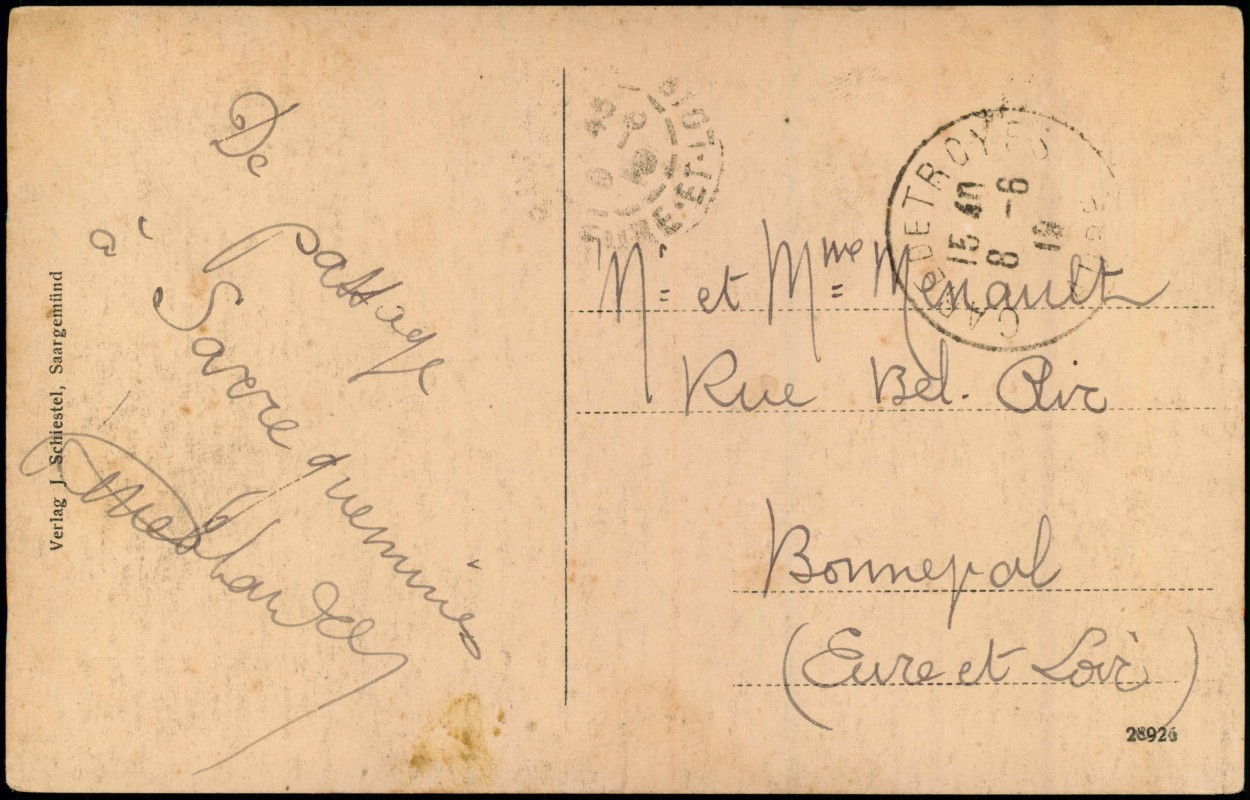 De
passage
à
Sarreguemines
Mr et Mme Menault
Rue Bel. Air
Bonneval
(Eure et Loir)
Verlag J. Schiestel, Saargemünd
GARE DE TROYES
15 40
8 -6
19
EURE-ET-LOIR
28926